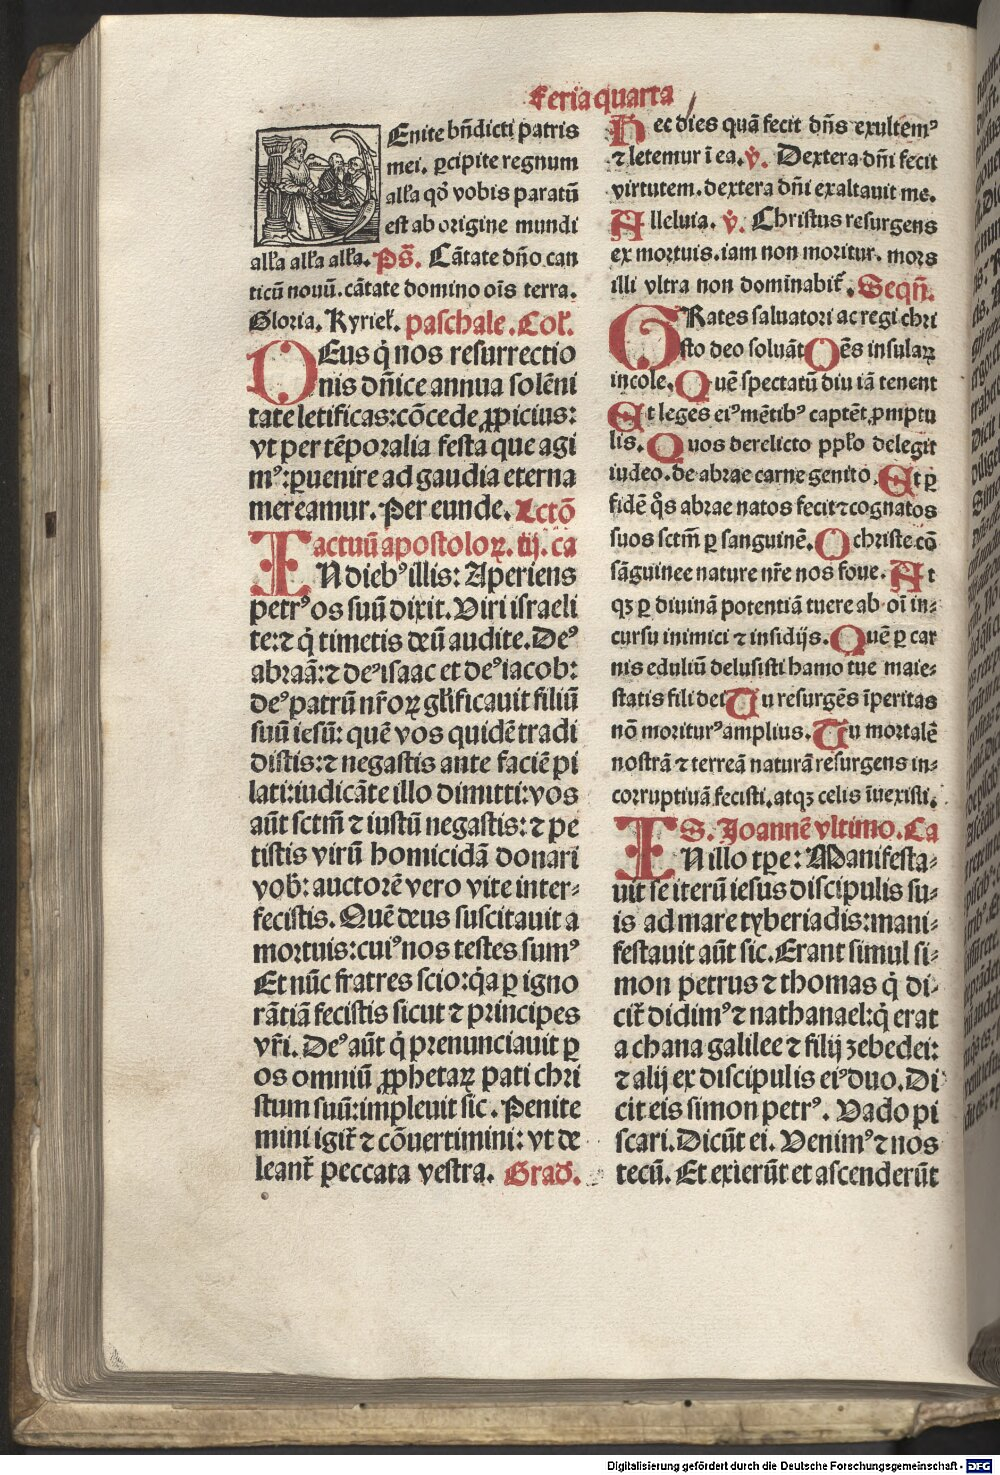 Feria quarta
Enite bn̄dicti patris
mei. ꝑcipite regnum
alľa qḋ vobis paratū
est ab origine mundi
alľa alľa alľa. Ps̄. Cātate dn̄o can
ticū nouū. cātate domino oīs terra.
Gloria. Kyriel̄. paschale. Col̄.
DEus q̇ nos resurrectio
nis dn̄ice annua solēni
tate letificas: cōcede ꝓpicius:
vt per tēporalia festa que agi
mꝰ: ꝑuenire ad gaudia eterna
mereamur. Per eunde. Lctō
actuū apostoloꝝ. iij. ca
IN diebꝰ illis: Aperiens
petrꝰ os suū dixit. Viri israeli
te: ⁊ q̇ timetis deū audite. Deꝰ
abraā: ⁊ deꝰ isaac et deꝰ iacob:
deꝰ patrū nr̄oꝝ glīficauit filiū
suū iesū: quē vos quidē tradi
distis: ⁊ negastis ante faciē pi
lati: iudicāte illo dimitti: vos
aūt sctm̄ ⁊ iustū negastis: ⁊ pe
tistis virū homicidā donari
vob̄: auctorē vero vite inter⸗
fecistis. Quē deus suscitauit a
mortuis: cuiꝰ nos testes sumꝰ
Et nūc fratres scio: q̇a ꝑ igno
rātiā fecistis sicut ⁊ principes
vr̄i. Deꝰ aūt q̇ prenunciauit ꝑ
os omniū ꝓphetaꝝ pati chri
stum suū: impleuit sic. Penite
mini igit̄ ⁊ cōuertimini: vt de
leant̄ peccata vestra. Grad̄.
Hec dies quā fecit dn̄s exultemꝰ
⁊ letemur ī ea. v̇. Dextera dn̄i fecit
virtutem. dextera dn̄i exaltauit me.
Alleluia. v̇. Christus resurgens
ex mortuis. iam non moritur. mors
illi vltra non dominabit̄. Seqn̄.
GRates saluatori ac regi chri
sto deo soluāt Oēs insulaꝝ
incole. Quē spectatū diu iā tenent
Et leges eiꝰ mētibꝰ captēt ꝓmptu
lis. Quos derelicto ppl̄o delegit
iudeo. de abrae carne genito. Et ꝑ
fidē q̊s abrae natos fecit ⁊ cognatos
suos sctm̄ ꝑ sanguinē. O christe cō
sāguinee nature nr̄e nos foue. At
qꝫ ꝑ diuinā potentiā tuere ab oī in⸗
cursu inimici ⁊ insidijs. Quē ꝑ car
nis eduliū delusisti hamo tue maie⸗
statis fili dei Tu resurgēs īperitas
nō moriturꝰ amplius. Tu mortalē
nostrā ⁊ terreā naturā resurgens in⸗
corruptiuā fecisti. atqꝫ celis īuexisti.
S. Joannē vltimo. Ca
IN illo tꝑe: Manifesta⸗
uit se iterū iesus discipulis su⸗
is ad mare tyberiadis: mani⸗
festauit aūt sic. Erant simul si⸗
mon petrus ⁊ thomas q̇ di⸗
cit̄ didimꝰ ⁊ nathanael: q̇ erat
a chana galilee ⁊ filij zebedei:
⁊ alij ex discipulis eiꝰ duo. Di
cit eis simon petrꝰ. Vado pi
scari. Dicūt ei. Venimꝰ ⁊ nos
tecū. Et exierūt et ascenderūt
Digitalisierung gefördert durch die Deutsche Forschungsgemeinschaft - DFG